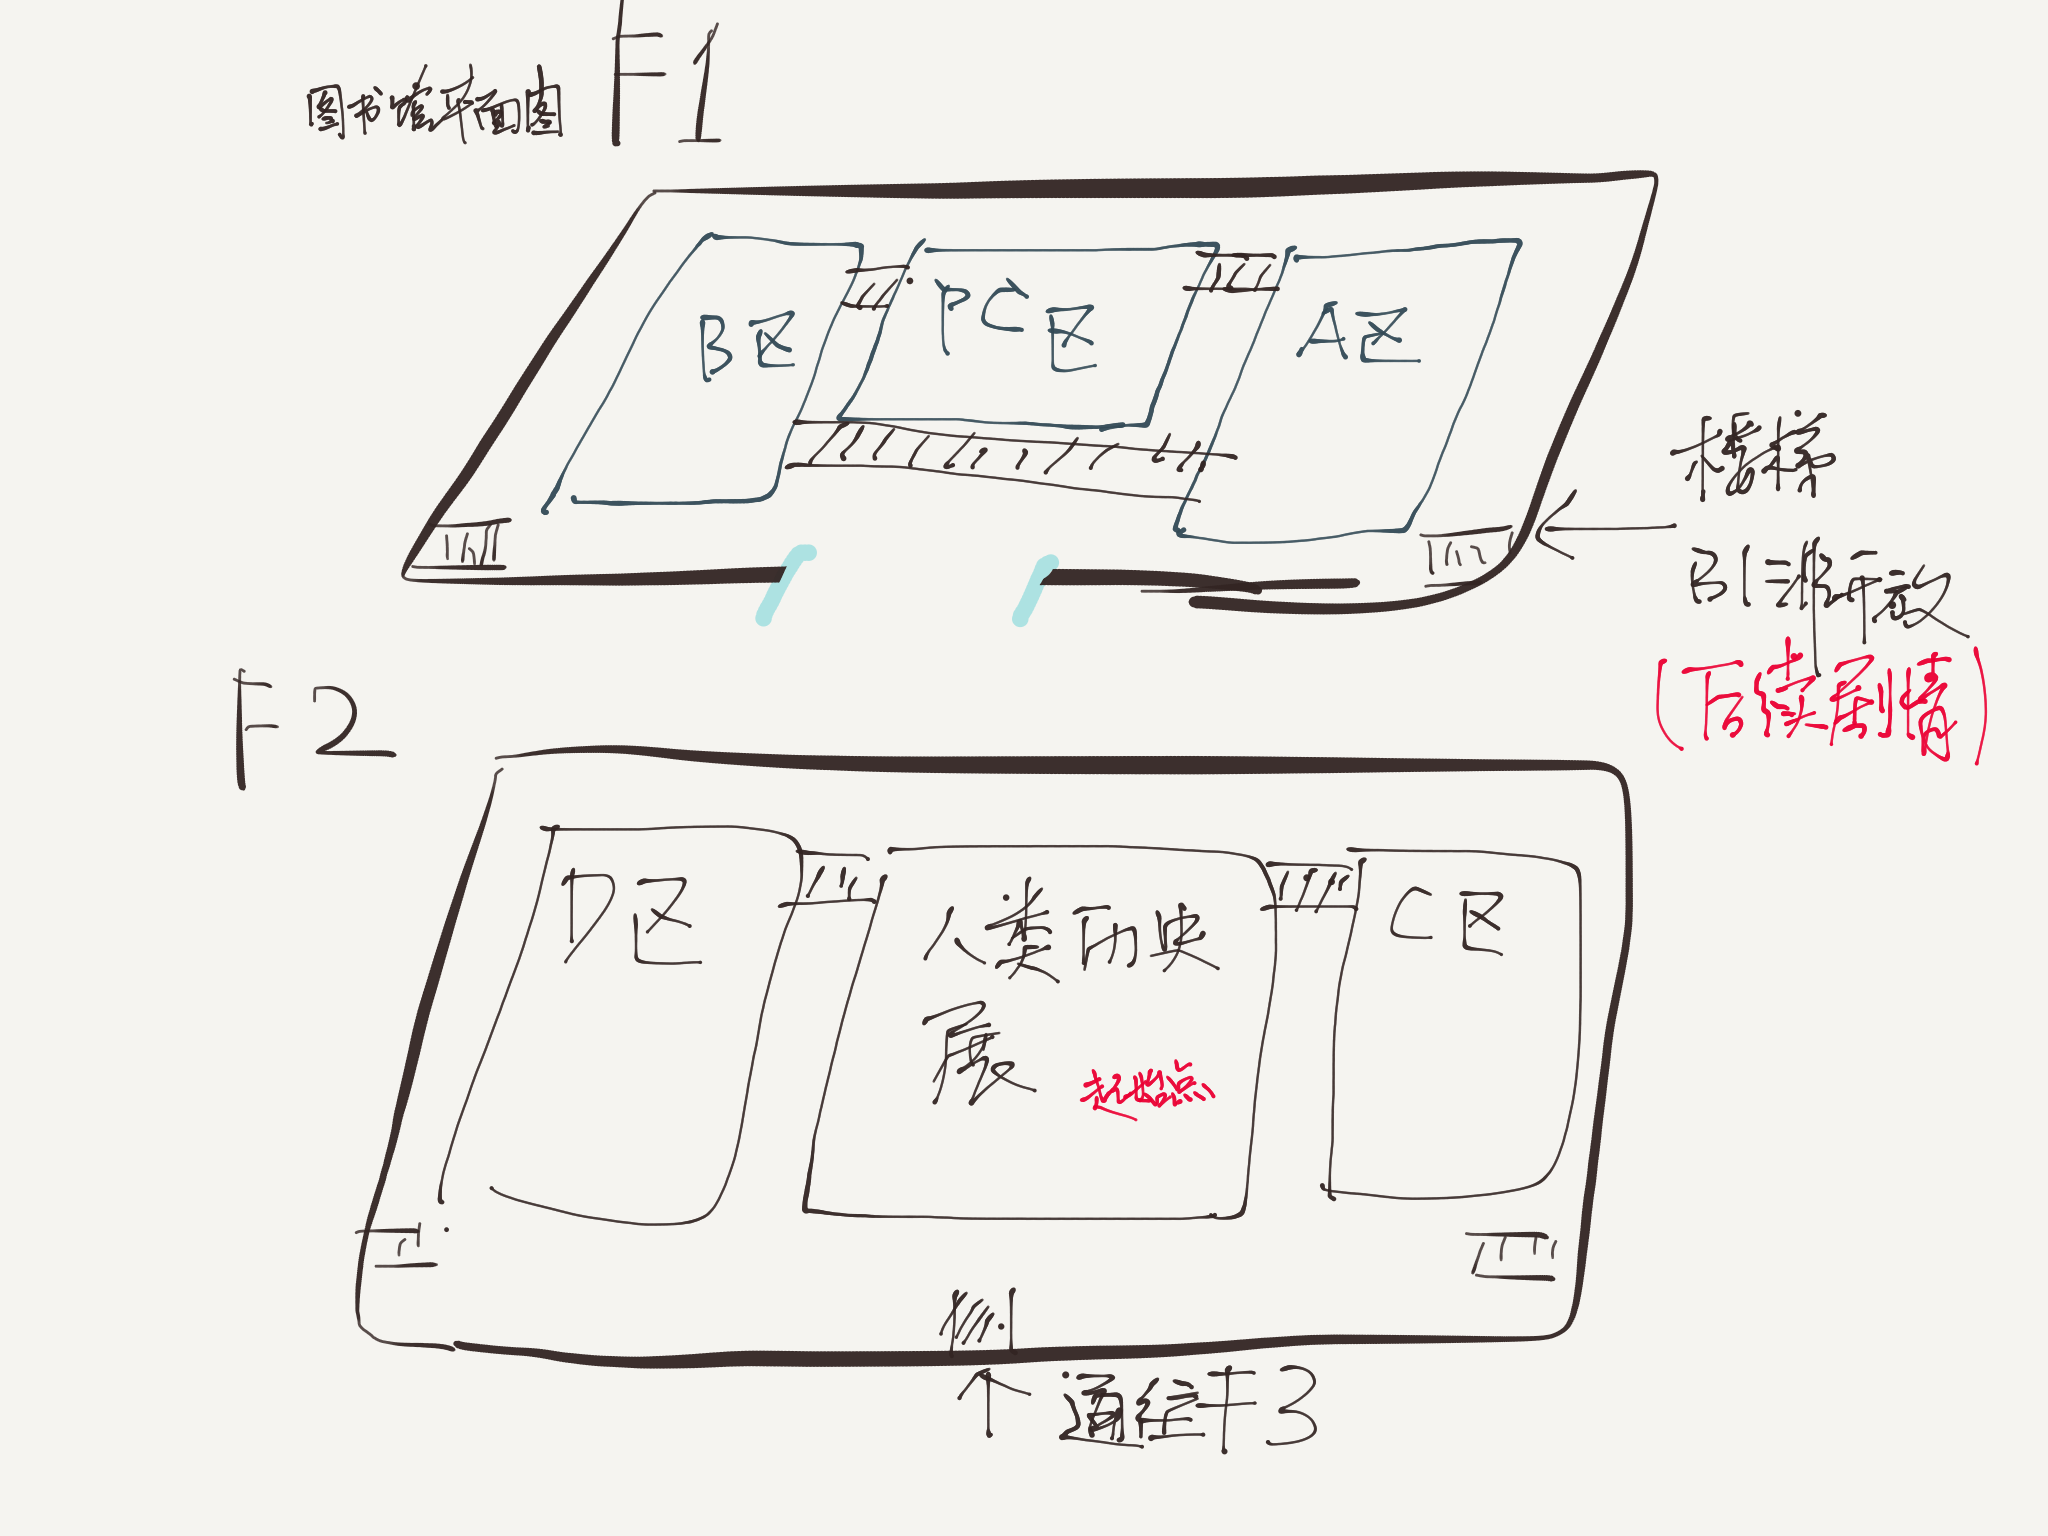 图书馆平面图
F1
B区
PC区
A区
楼梯
B1非开放
(后续剧情)
F2
D区
人类历史
展
起始点
C区
通往F3